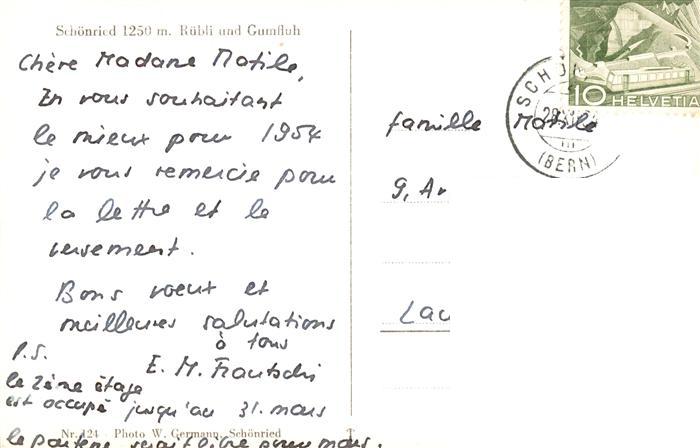 Schönried 1250 m. Rübli und Gumfluh
Chère Madame Matile,
En vous souhaitant
le mieux pour 1954
je vous remercie pour
la lettre et le
versement.
Bons voeux et
meilleures salutations
à tous
E. M. Frautschi
P.S.
le 2ème étage
est occupé jusqu'au 31. mars
le parterre serait libre pour mars.
Nr. 124 Photo W. Germann, Schönried
famille Matile
G, Ar
Lau
10 HELVETIA
(BERN)